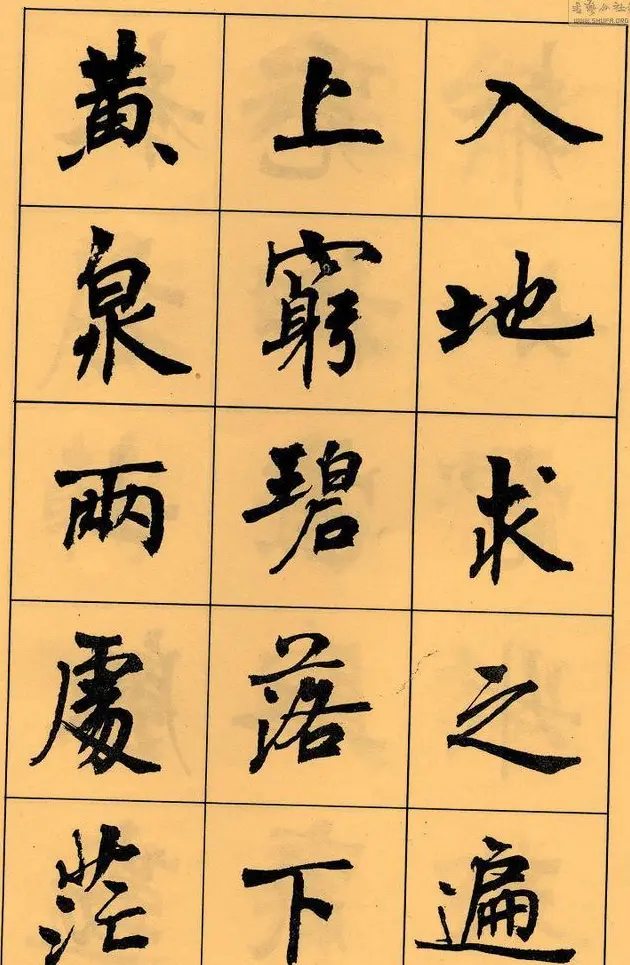 入地求之遍
上窮碧落下
黃泉兩處茫
WWW.SHUFA.ORG